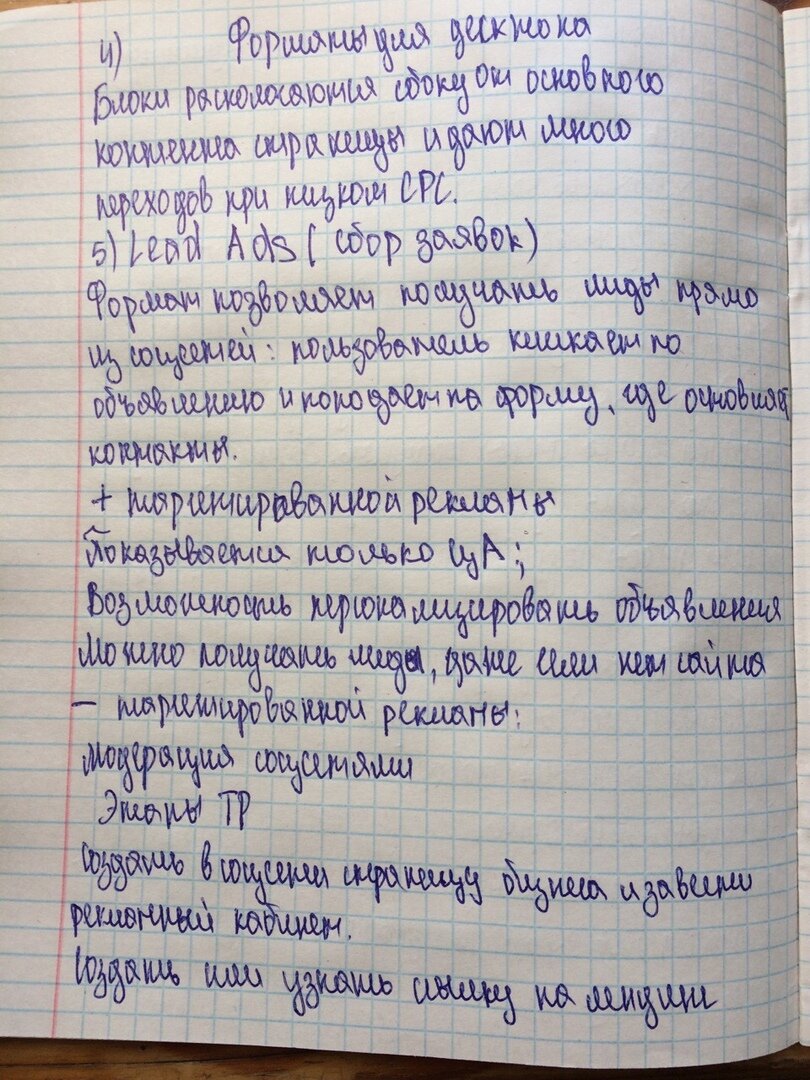 4) Форматы для десктопа
Блоки располагаются сбоку от основного
контента страницы и дают много
переходов при низком CPC.
5) Lead Ads ( сбор заявок)
Формат позволяет получать лиды прямо
из соцсетей: пользователь кликает по
объявлению и попадает на форму, где оставляет
контакты.
+ таргетированной рекламы
Показывается только ЦА;
Возможность персонализировать объявления
Можно получать лиды, даже если нет сайта
– таргетированной рекламы:
Модерация соцсетями
Этапы ТР
Создать в соцсети страницу бизнеса и завести
рекламный кабинет.
Создать или узнать ссылку на лендинг